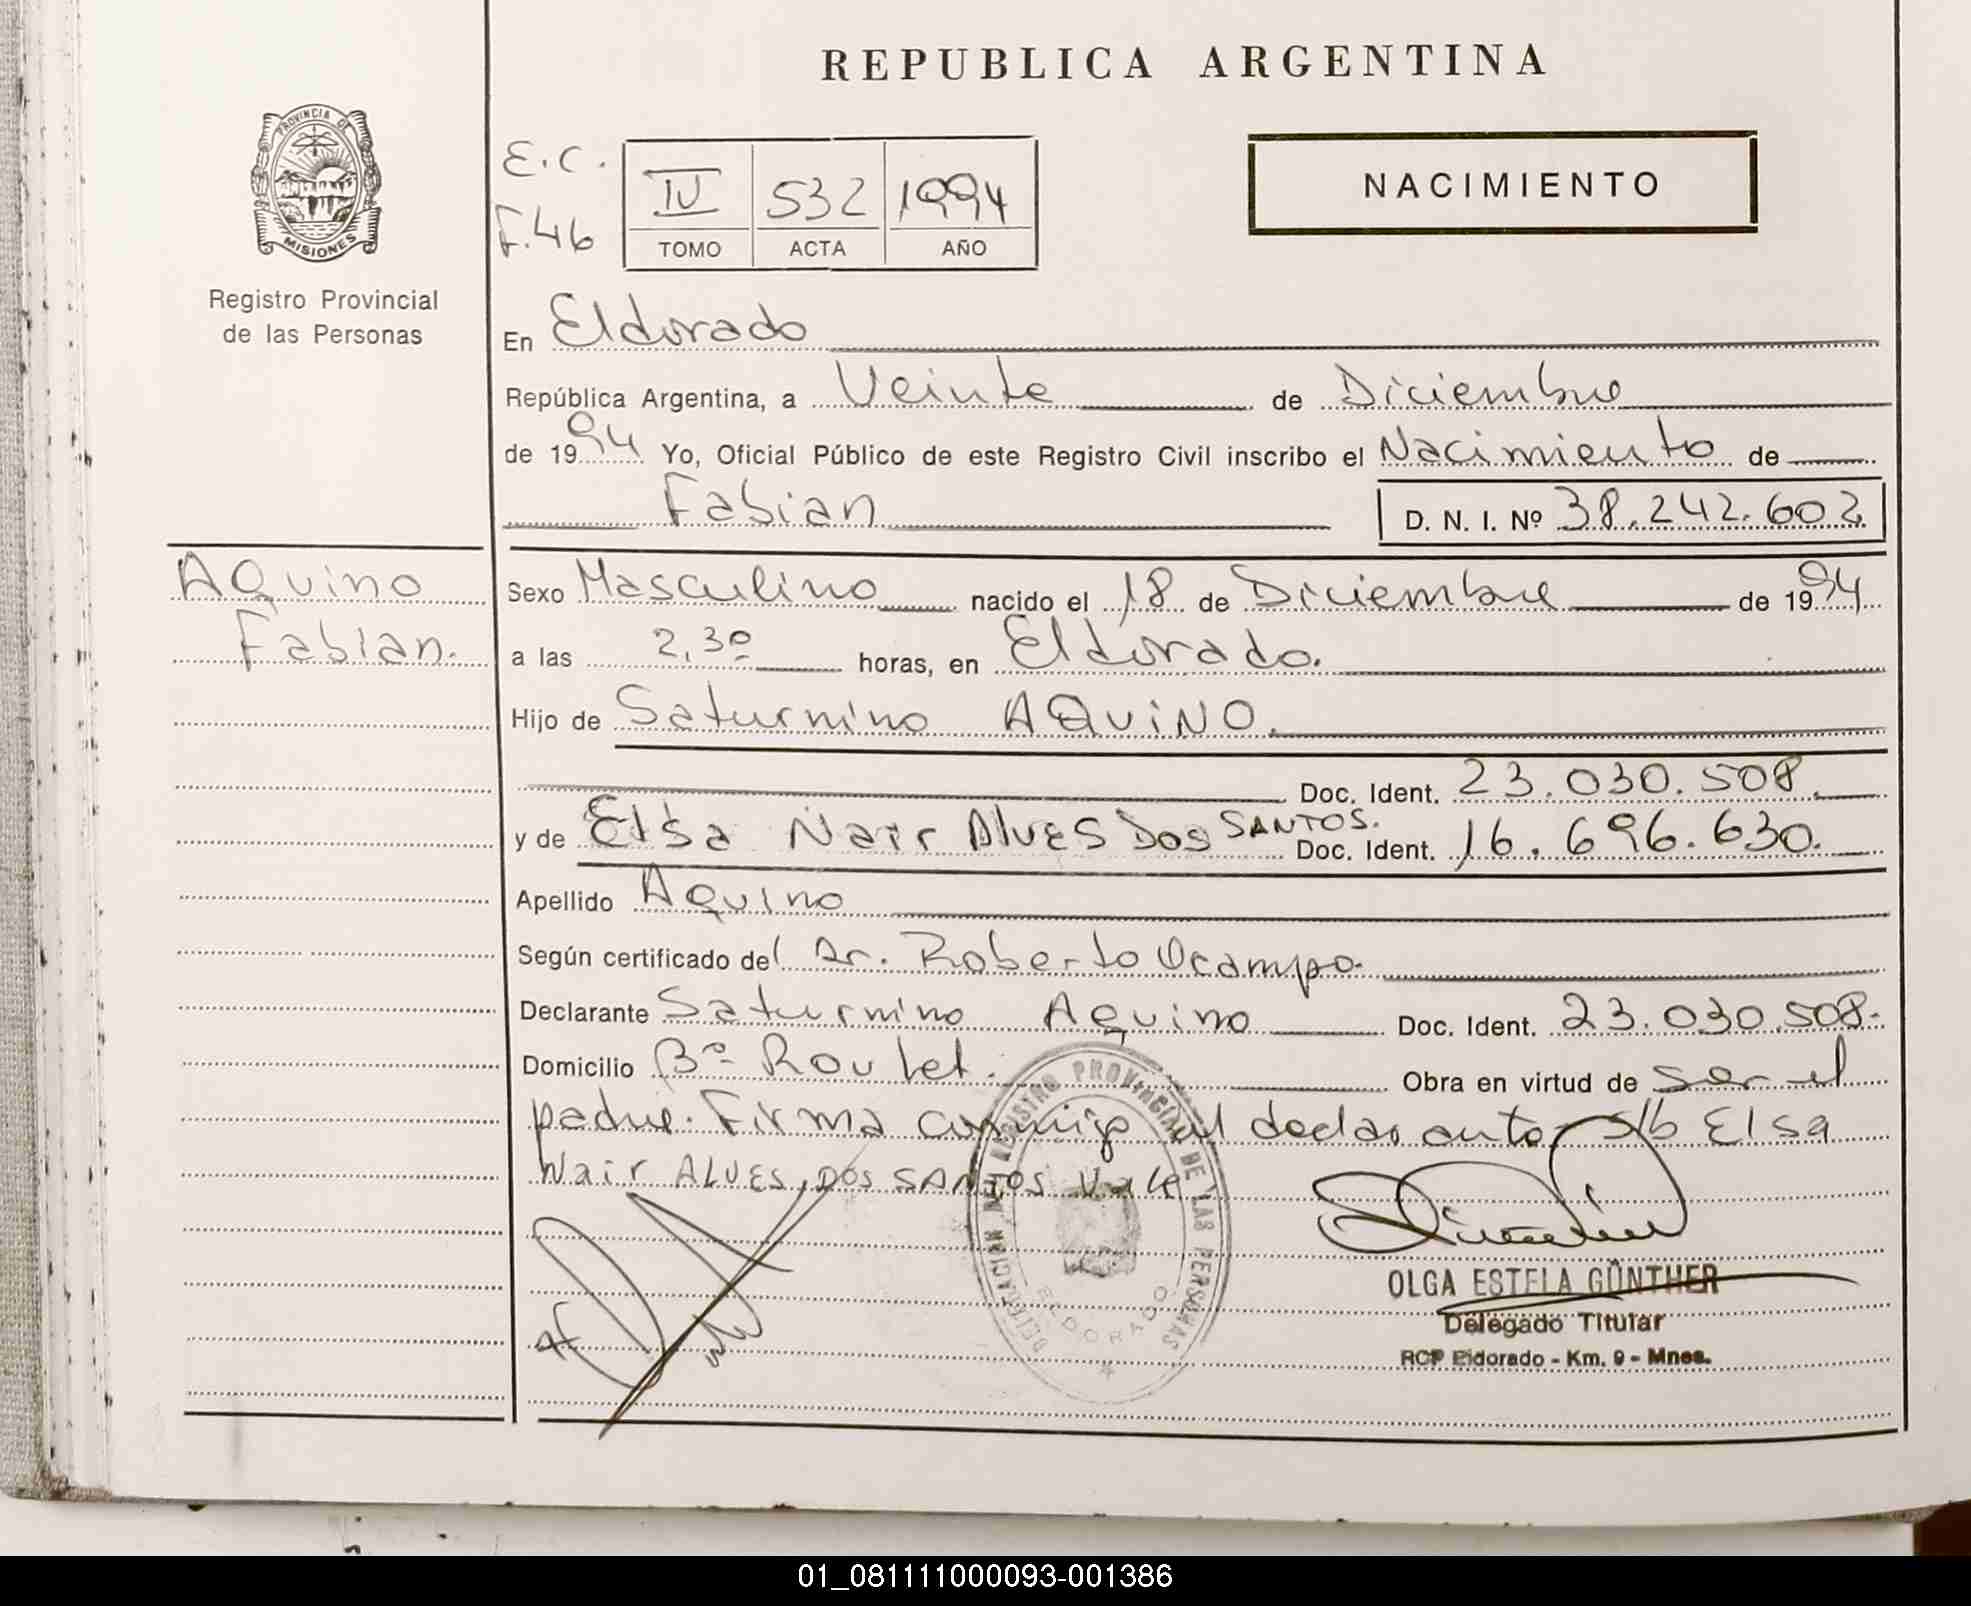 REPUBLICA ARGENTINA
PROVINCIA DE
MISIONES
Registro Provincial
de las Personas
E.C.
F.46
IV 532 1994
TOMO ACTA AÑO
NACIMIENTO
En Eldorado
República Argentina, a Veinte de Diciembre
de 1994 Yo, Oficial Público de este Registro Civil inscribo el Nacimiento de
Fabian D. N. I. Nº 38.242.602
Aquino
Fabian.
Sexo Masculino nacido el 18 de Diciembre de 1994
a las 2,30 horas, en Eldorado.
Hijo de Saturnino AQUINO.
Doc. Ident. 23.030.508.
y de Elsa Nair Alves Dos SANTOS. Doc. Ident. 16.696.630.
Apellido Aquino
Según certificado del Dr. Roberto Ocampo.
Declarante Saturnino Aquino Doc. Ident. 23.030.508.
Domicilio Bº Roulet. Obra en virtud de ser el
padre. Firma conmigo el declarante s/b Elsa
Nair ALVES DOS SANTOS Vale
DELEGACION DEL REGISTRO PROVINCIAL DE LAS PERSONAS
ELDORADO
OLGA ESTELA GÜNTHER
Delegado Titular
RCP Eldorado - Km. 9 - Mnes.
01_081111000093-001386